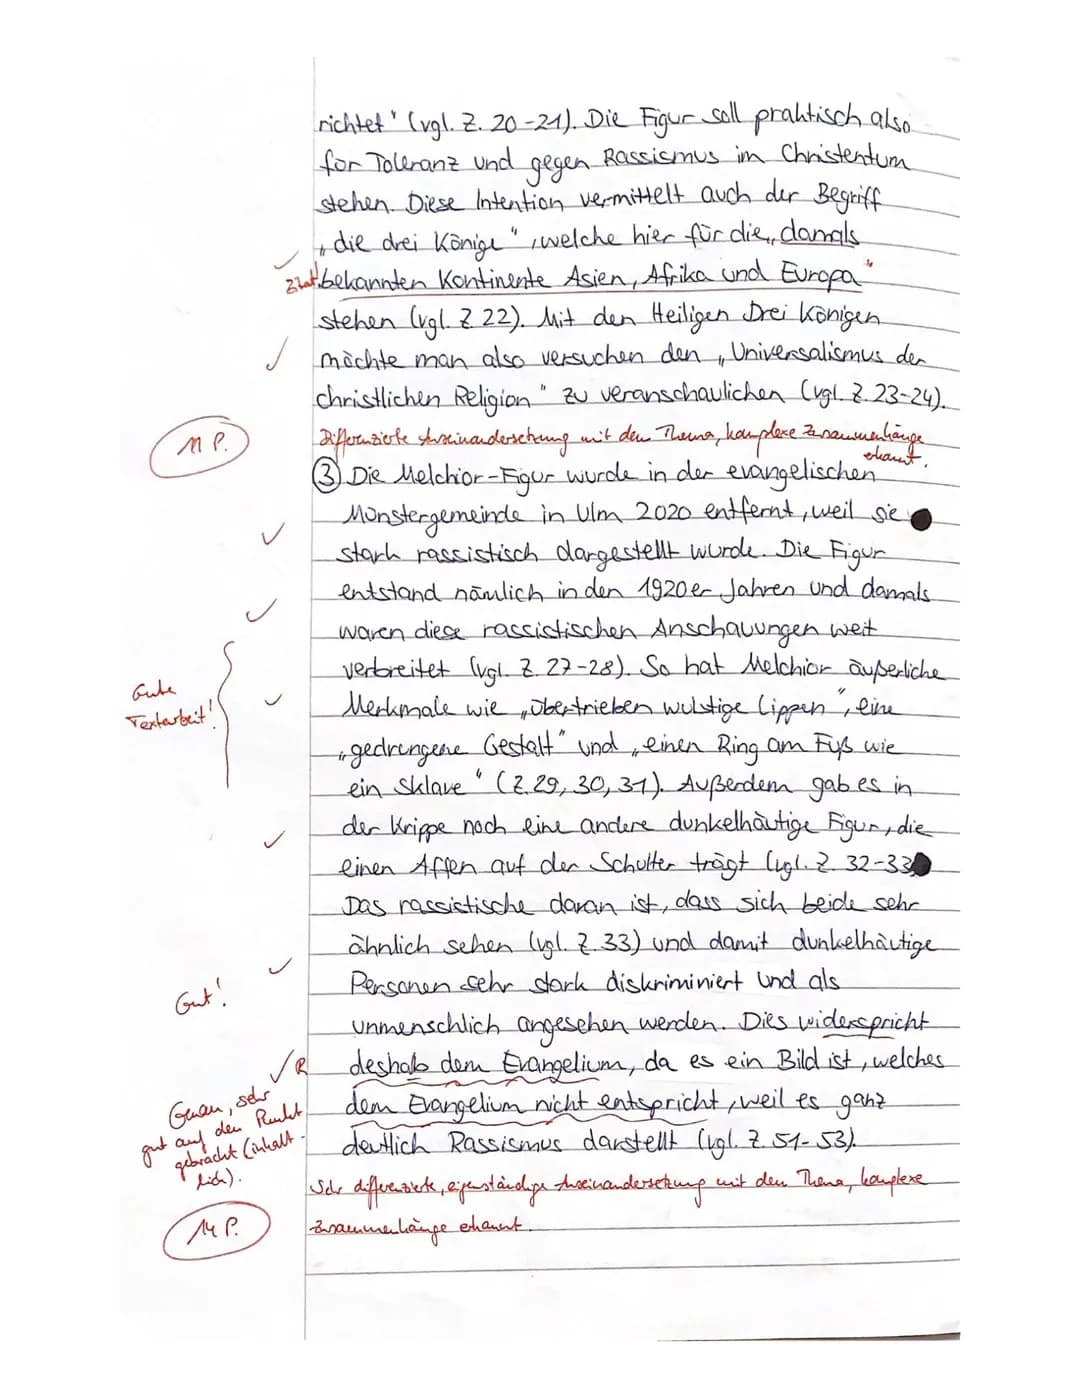 richtet" (vgl. Z. 20-21). Die Figur soll praktisch also
für Toleranz und gegen Rassismus im Christentum
stehen. Diese Intention vermittelt auch der Begriff
„die drei Könige", welche hier für die „damals
Zitat bekannten Kontinente Asien, Afrika und Europa"
stehen (vgl. Z 22). Mit den Heiligen Drei Königen
möchte man also versuchen den „Universalismus der
christlichen Religion" zu veranschaulichen (vgl. Z. 23-24).
11 P.
Differenzierte Auseinandersetzung mit dem Thema, komplexe Zusammenhänge
erkannt.
③ Die Melchior-Figur wurde in der evangelischen
Münstergemeinde in Ulm 2020 entfernt, weil sie
stark rassistisch dargestellt wurde. Die Figur
entstand nämlich in den 1920er Jahren und damals
waren diese rassistischen Anschauungen weit
verbreitet (vgl. Z. 27-28). So hat Melchior äußerliche
Gute
Textarbeit!
Merkmale wie „übertrieben wulstige Lippen", eine
„gedrungene Gestalt" und „einen Ring am Fuß wie
ein Sklave" (Z. 29, 30, 31). Außerdem gab es in
der Krippe noch eine andere dunkelhäutige Figur, die
einen Affen auf der Schulter trägt (vgl. Z. 32-33
Das rassistische daran ist, dass sich beide sehr
ähnlich sehen (vgl. Z. 33) und damit dunkelhäutige
Gut!
Personen sehr stark diskriminiert und als
unmenschlich angesehen werden. Dies widerspricht
R
deshalb dem Evangelium, da es ein Bild ist, welches
Genau, sehr
gut auf den Punkt
gebracht (inhalt-
lich).
dem Evangelium nicht entspricht, weil es ganz
deutlich Rassismus darstellt (vgl. Z. 51-53).
Sehr differenzierte, eigenständige Auseinandersetzung mit dem Thema, komplexe
14 P.
Zusammenhänge erkannt.